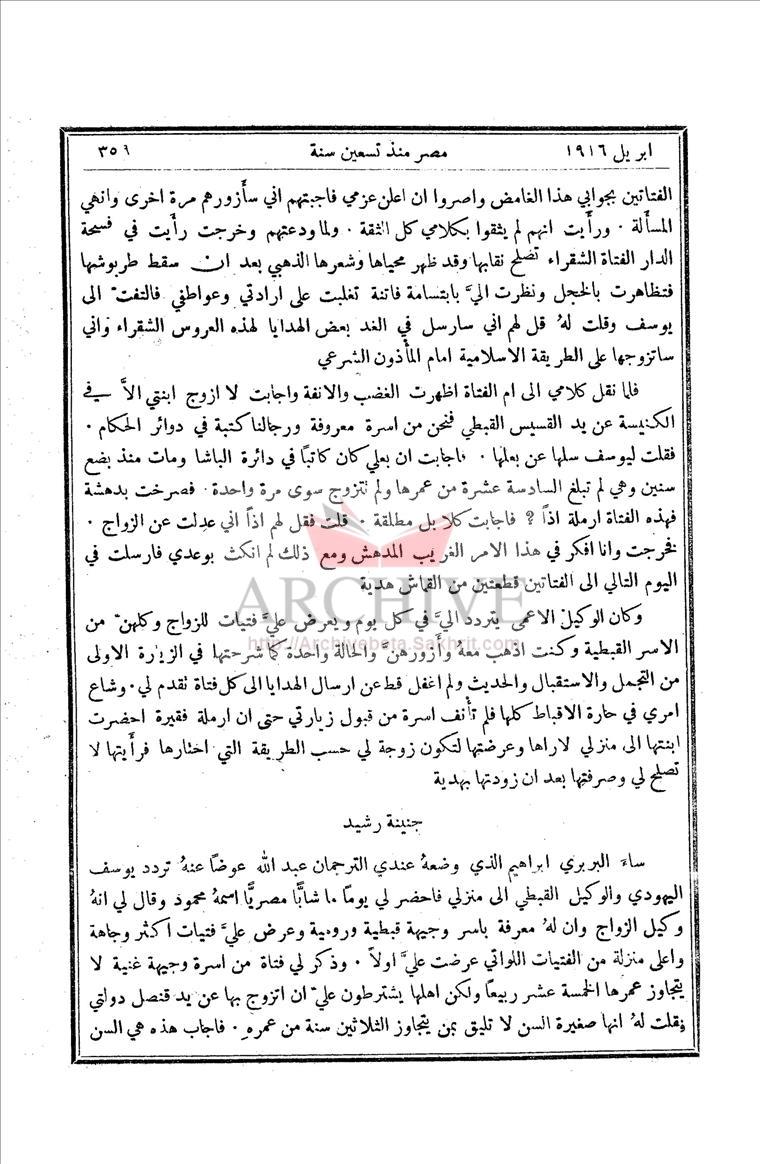 ابريل ١٩١٦ مصر منذ تسعين سنة ٣٥٩
الفتاتين بجوابي هذا الغامض واصروا ان اعلن عزمي فاجبتهم اني سأزورهم مرة اخرى وانهي
المسألة . ورأيت انهم لم يثقوا بكلامي كل الثقة . ولما ودعتهم وخرجت رأيت في فسحة
الدار الفتاة الشقراء تصلح نقابها وقد ظهر محياها وشعرها الذهبي بعد ان سقط طربوشها
فتظاهرت بالخجل ونظرت اليَّ بابتسامة فاتنة تغلبت على ارادتي وعواطفي فالتفتّ الى
يوسف وقلت لهُ قل لهم اني سارسل في الغد بعض الهدايا لهذه العروس الشقراء واني
ساتزوجها على الطريقة الاسلامية امام المأذون الشرعي
فلما نقل كلامي الى ام الفتاة اظهرت الغضب والانفة واجابت لا ازوج ابنتي الاَّ في
الكنيسة عن يد القسيس القبطي فنحن من اسرة معروفة ورجالنا كتبة في دوائر الحكام .
فقلت ليوسف سلها عن بعلها . فاجابت ان بعلي كان كاتبًا في دائرة الباشا ومات منذ بضع
سنين وهي لم تبلغ السادسة عشرة من عمرها ولم تتزوج سوى مرة واحدة . فصرخت بدهشة
فهذه الفتاة ارملة اذاً ؟ فاجابت كلا بل مطلقة . قلت فقل لهم اذاً اني عدلت عن الزواج .
فخرجت وانا افكر في هذا الامر الغريب المدهش ومع ذلك لم انكث بوعدي فارسلت في
اليوم التالي الى الفتاتين قطعتين من القماش هدية
ARCHIVE
http://Archivebeta.Sakhrit.com
وكان الوكيل الاعمى يتردد اليَّ في كل يوم ويعرض عليَّ فتيات للزواج وكلهنّ من
الاسر القبطية وكنت اذهب معهُ وأزورهنَّ والحالة واحدة كما شرحتها في الزيارة الاولى
من التجمل والاستقبال والحديث ولم اغفل قط عن ارسال الهدايا الى كل فتاة تقدم لي . وشاع
امري في حارة الاقباط كلها فلم تأنف اسرة من قبول زيارتي حتى ان ارملة فقيرة احضرت
ابنتها الى منزلي لاراها وعرضتها لتكون زوجة لي حسب الطريقة التي اختارها فرأيتها لا
تصلح لي وصرفتها بعد ان زودتها بهدية
جنينة رشيد
ساءَ البربري ابراهيم الذي وضعهُ عندي الترجمان عبد الله عوضًا عنهُ تردد يوسف
اليهودي والوكيل القبطي الى منزلي فاحضر لي يومًا ما شابًّا مصريًّا اسمهُ محمود وقال لي انهُ
وكيل الزواج وان لهُ معرفة باسر وجيهة قبطية ورومية وعرض عليَّ فتيات اكثر وجاهة
واعلى منزلة من الفتيات اللواتي عرضت عليَّ اولاً . وذكر لي فتاة من اسرة وجيهة غنية لا
يتجاوز عمرها الخمسة عشر ربيعًا ولكن اهلها يشترطون عليّ ان اتزوج بها عن يد قنصل دولتي
فقلت لهُ انها صغيرة السن لا تليق بمن يتجاوز الثلاثين سنة من عمرهِ . فاجاب هذه هي السن